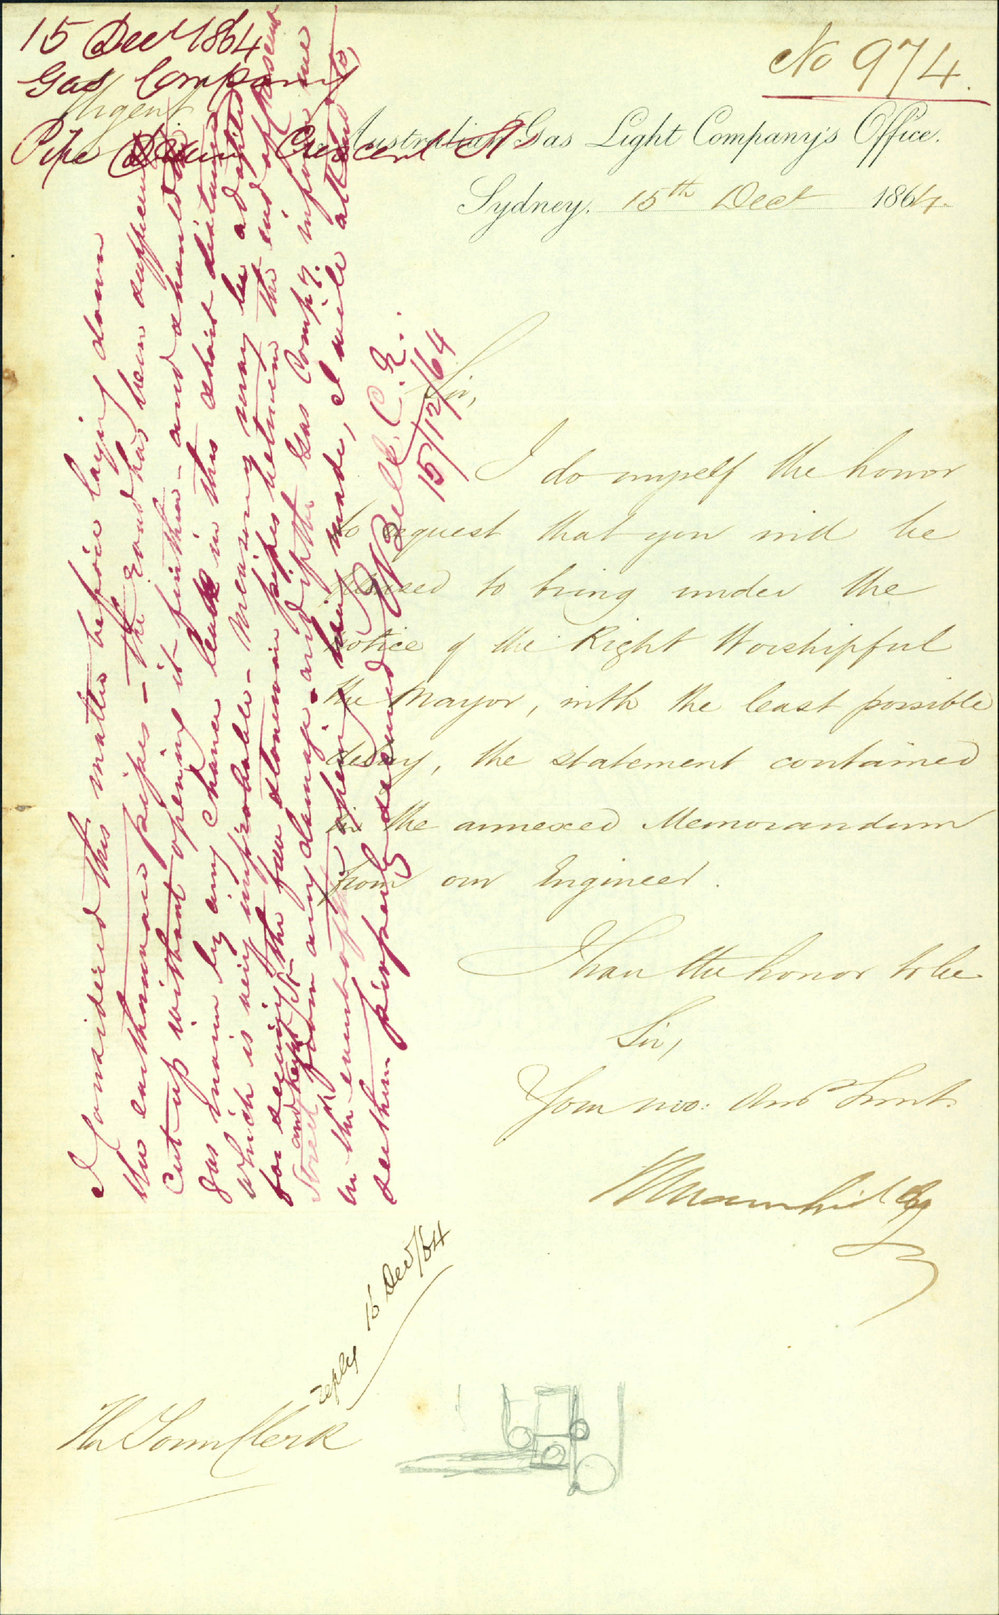 15 Decr 1864
Gas Company
Urgent
Pipe Drain Crescent St
No 974.
Australian Gas Light Company's Office.
Sydney, 15th Decr 1864.
Sir,
I do myself the honor
to request that you will be
pleased to bring under the
notice of the Right Worshipful
the Mayor, with the least possible
delay, the statement contained
in the annexed Memorandum
from our Engineer.
I have the honor to be
Sir,
Your mo: Obt Servt.
The Town Clerk
reply 16 Decr/64
I considered this matter before laying down
the earthenware pipes - The road has been sufficiently
cut up without opening it further - and should the
gas main by any chance leak in this short distance
which is very improbable - Means may be adopted
for securing the few stoneware pipes between the end of Crescent
Street and Kent St from any damage - and if the Gas Compy. inform me
in the event of the opening being made, I will attend to
them properly secured
E Bell. C.E.
15/12/64